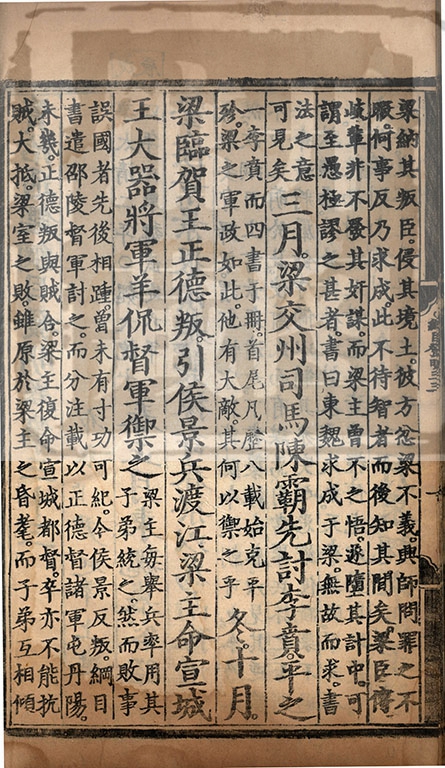 梁納其叛臣。侵其境土。彼方忿梁不義。興師問罪之不
暇。何事反乃求成。此不待智者而後知其間矣。梁臣傅
岐輩非不發其奸謀。而梁主曾不之悟。遂墮其計中。可
謂至愚極謬之甚者。書曰東魏求成于梁。無故而求。書
法之意
可見矣
三月。梁交州司馬陳霸先討李賁。平之
一李賁而四書于冊。首尾凡歷八載始克平
殄。梁之軍政如此。他有大敵。其何以禦之乎
冬。十月。
梁臨賀王正德叛。引侯景兵渡江梁主命宣城
王大器將軍羊侃督軍禦之
梁主每舉兵率用其
子弟統之。然而敗事
誤國者先後相踵。曾未有寸功可紀。今侯景反叛。綱目
書遣邵陵督軍討之。而分注載以正德督諸軍屯丹陽。
未幾。正德叛與賊合。梁主復命宣城都督。卒亦不能抗
賊。大抵。梁室之敗。雖原於梁主之昏耄。而子弟互相傾